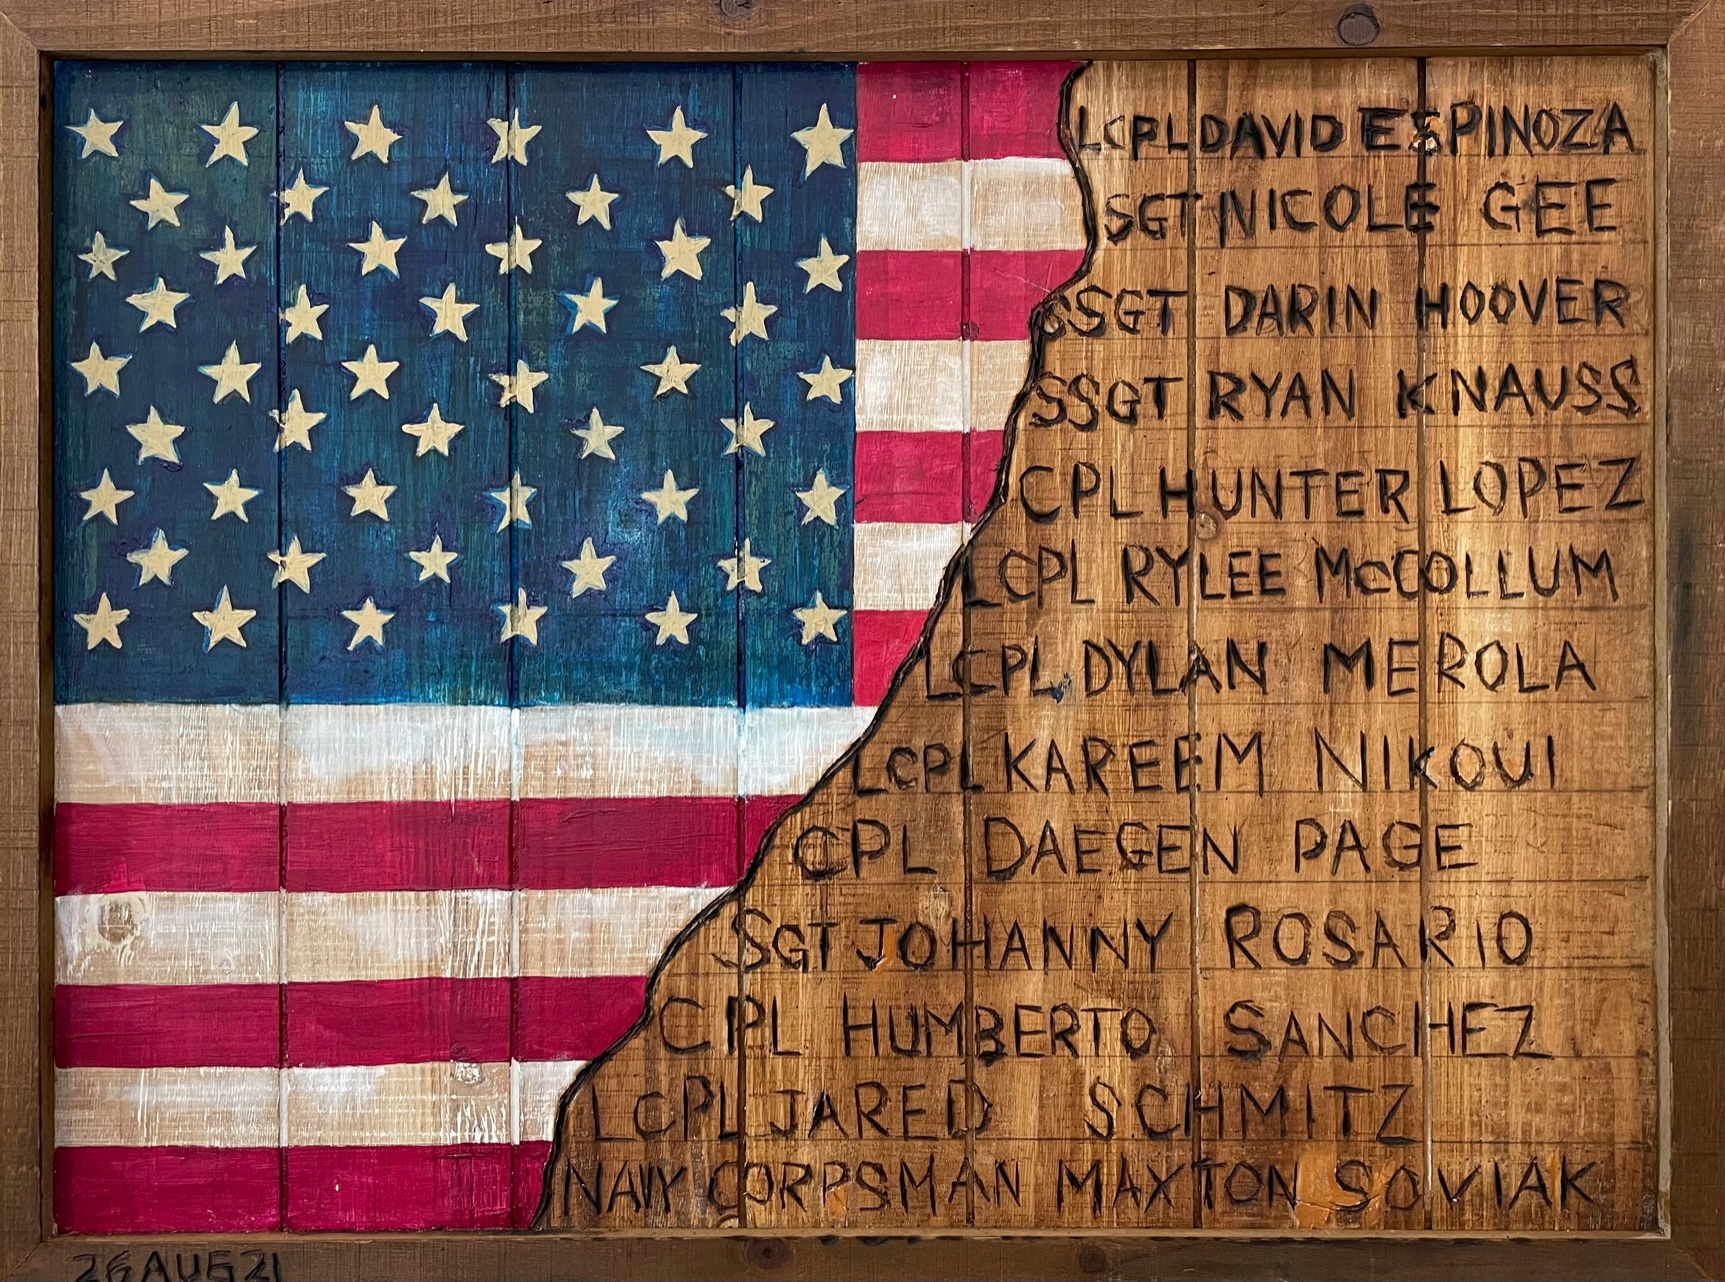 LCPL DAVID ESPINOZA
SGT NICOLE GEE
SSGT DARIN HOOVER
SSGT RYAN KNAUSS
CPL HUNTER LOPEZ
LCPL RYLEE McCOLLUM
LCPL DYLAN MEROLA
LCPL KAREEM NIKOUI
CPL DAEGEN PAGE
SGT JOHANNY ROSARIO
CPL HUMBERTO SANCHEZ
LCPL JARED SCHMITZ
NAVY CORPSMAN MAXTON SOVIAK
26AUG21